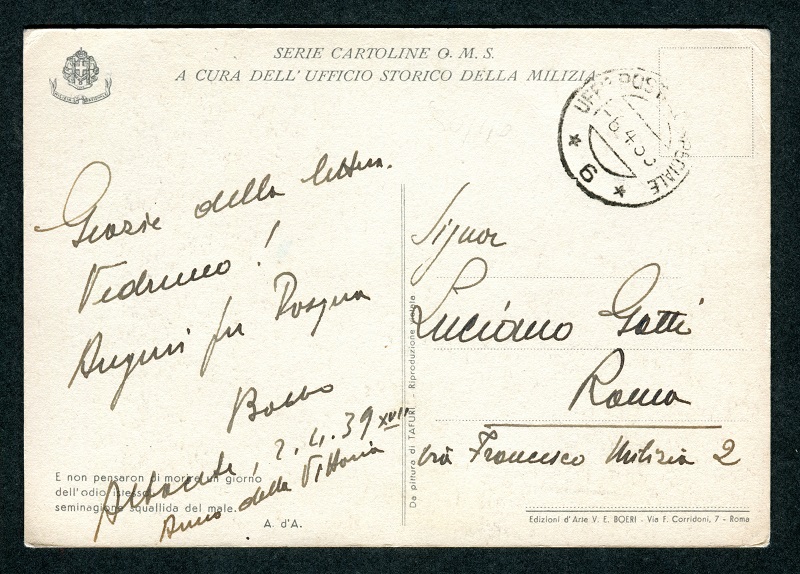 SERIE CARTOLINE O. M. S.
A CURA DELL' UFFICIO STORICO DELLA MILIZIA
UFF. POST SPECIALE
-6.4.
* 6 *
Grazie della lettera.
Vedremo!
Auguri per Pasqua
2.4.39 XVII
Anno della Vittoria
E non pensaron di morire un giorno
dell'odio istesso
seminagione squallida del male.
A. d'A.
Da pittura di TAFURI - Riproduzione vietata
Signor
Luciano Gatti
Roma
via Francesco Milizia 2
Edizioni d'Arte V. E. BOERI - Via F. Corridoni, 7 - Roma